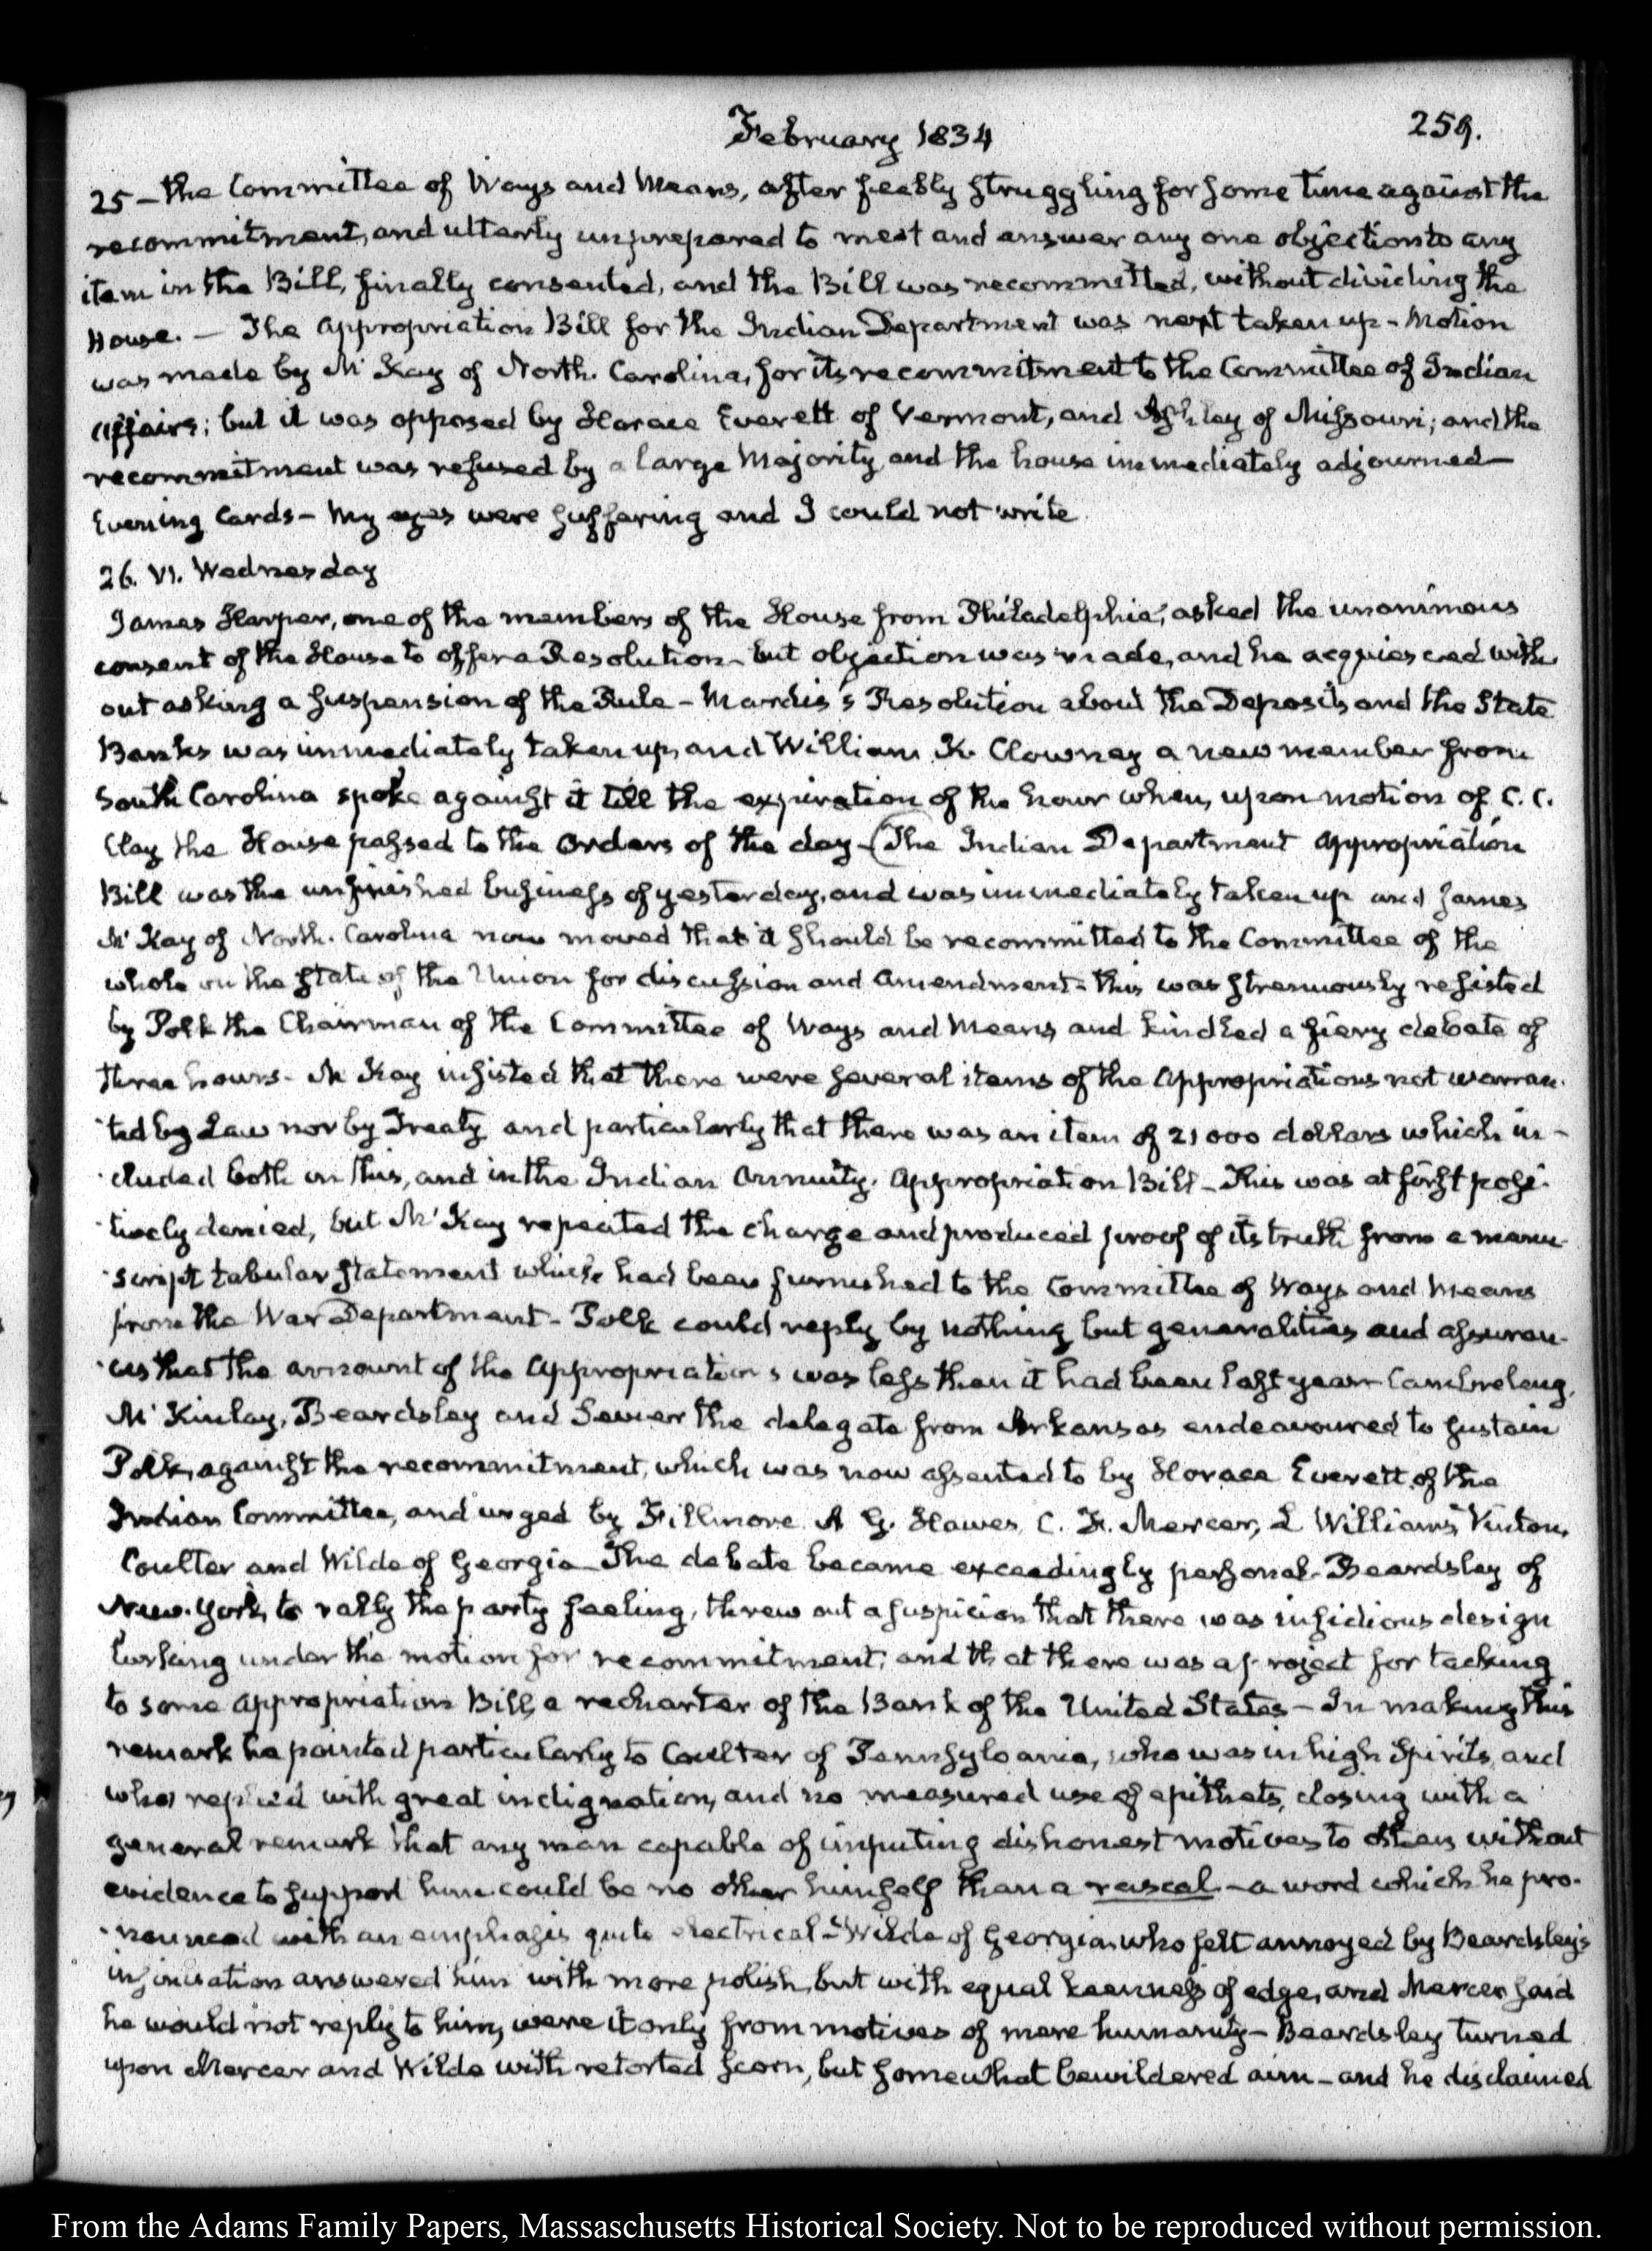 February 1834
259.
25 — the Committee of Ways and Means, after feebly struggling for some time against the
recommitment, and utterly unprepared to meet and answer any one objection to any
item in the Bill, finally consented, and the Bill was recommitted, without dividing the
House. — The Appropriation Bill for the Indian Department was next taken up - Motion
was made by M'Kay of North-Carolina, for its recommitment to the Committee of Indian
Affairs; but it was opposed by Horace Everett of Vermont, and Ashley of Missouri; and the
recommitment was refused by a large Majority, and the house immediately adjourned —
Evening Cards - My eyes were suffering and I could not write.
26. VI. Wednesday
James Harper, one of the members of the House from Philadelphia, asked the unanimous
consent of the House to offer a Resolution - but objection was made, and he acquiesced with
out asking a suspension of the Rule - Mardis's Resolution about the Deposits and the State
Banks was immediately taken up, and William K. Clowney a new member from
South Carolina spoke against it till the expiration of the hour when, upon motion of C. C.
Clay the House passed to the Orders of the day - (The Indian Department Appropriation
Bill was the unfinished business of yesterday, and was immediately taken up and James
M'Kay of North-Carolina now moved that it should be recommitted to the Committee of the
whole on the state of the Union for discussion and amendment - this was strenuously resisted
by Polk the Chairman of the Committee of Ways and Means and kindled a fiery debate of
three hours - M'Kay insisted that there were several items of the Appropriations not warran-
-ted by Law nor by Treaty and particularly that there was an item of 21000 dollars which in-
-cluded both in this, and in the Indian Annuity Appropriation Bill - This was at first posi-
-tively denied, but M'Kay repeated the charge and produced proof of its truth from a manu-
-script tabular statement which had been furnished to the Committee of Ways and Means
from the War Department - Polk could reply by nothing but generalities and assuran-
-ces that the amount of the Appropriations was less than it had been last year - Cambreleng,
M'Kinlay, Beardsley and Sevier the delegate from Arkansas endeavoured to sustain
Polk, against the recommitment, which was now assented to by Horace Everett of the
Indian Committee, and urged by Fillmore A G. Hawes, C. F. Mercer, L Williams, Vinton,
Coulter and Wilde of Georgia - The debate became exceedingly personal - Beardsley of
New-York, to rally the party feeling, threw out a suspicion that there was insidious design
lurking under the motion for recommitment; and that there was a project for tacking
to some appropriation Bill, a recharter of the Bank of the United States — In making this
remark he pointed particularly to Coulter of Pennsylvania, who was in high Spirits, and
who replied with great indignation, and no measured use of epithets, closing with a
general remark that any man capable of imputing dishonest motives to others without
evidence to support him could be no other himself than a rascal - a word which he pro-
-nounced with an emphasis quite electrical - Wilde of Georgia, who felt annoyed by Beardsley's
insinuation answered him with more polish, but with equal keenness of edge, and Mercer said
he would not reply to him, were it only from motives of mere humanity - Beardsley turned
upon Mercer and Wilde with retorted scorn, but somewhat bewildered aim - and he disclaimed
From the Adams Family Papers, Massaschusetts Historical Society. Not to be reproduced without permission.